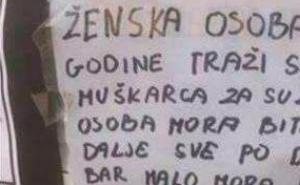 ŽENSKA OSOBA
GODINE TRAŽI
MUŠKARCA ZA
OSOBA MORA BIT
DALJE SVE PO
BAR MALO MORA